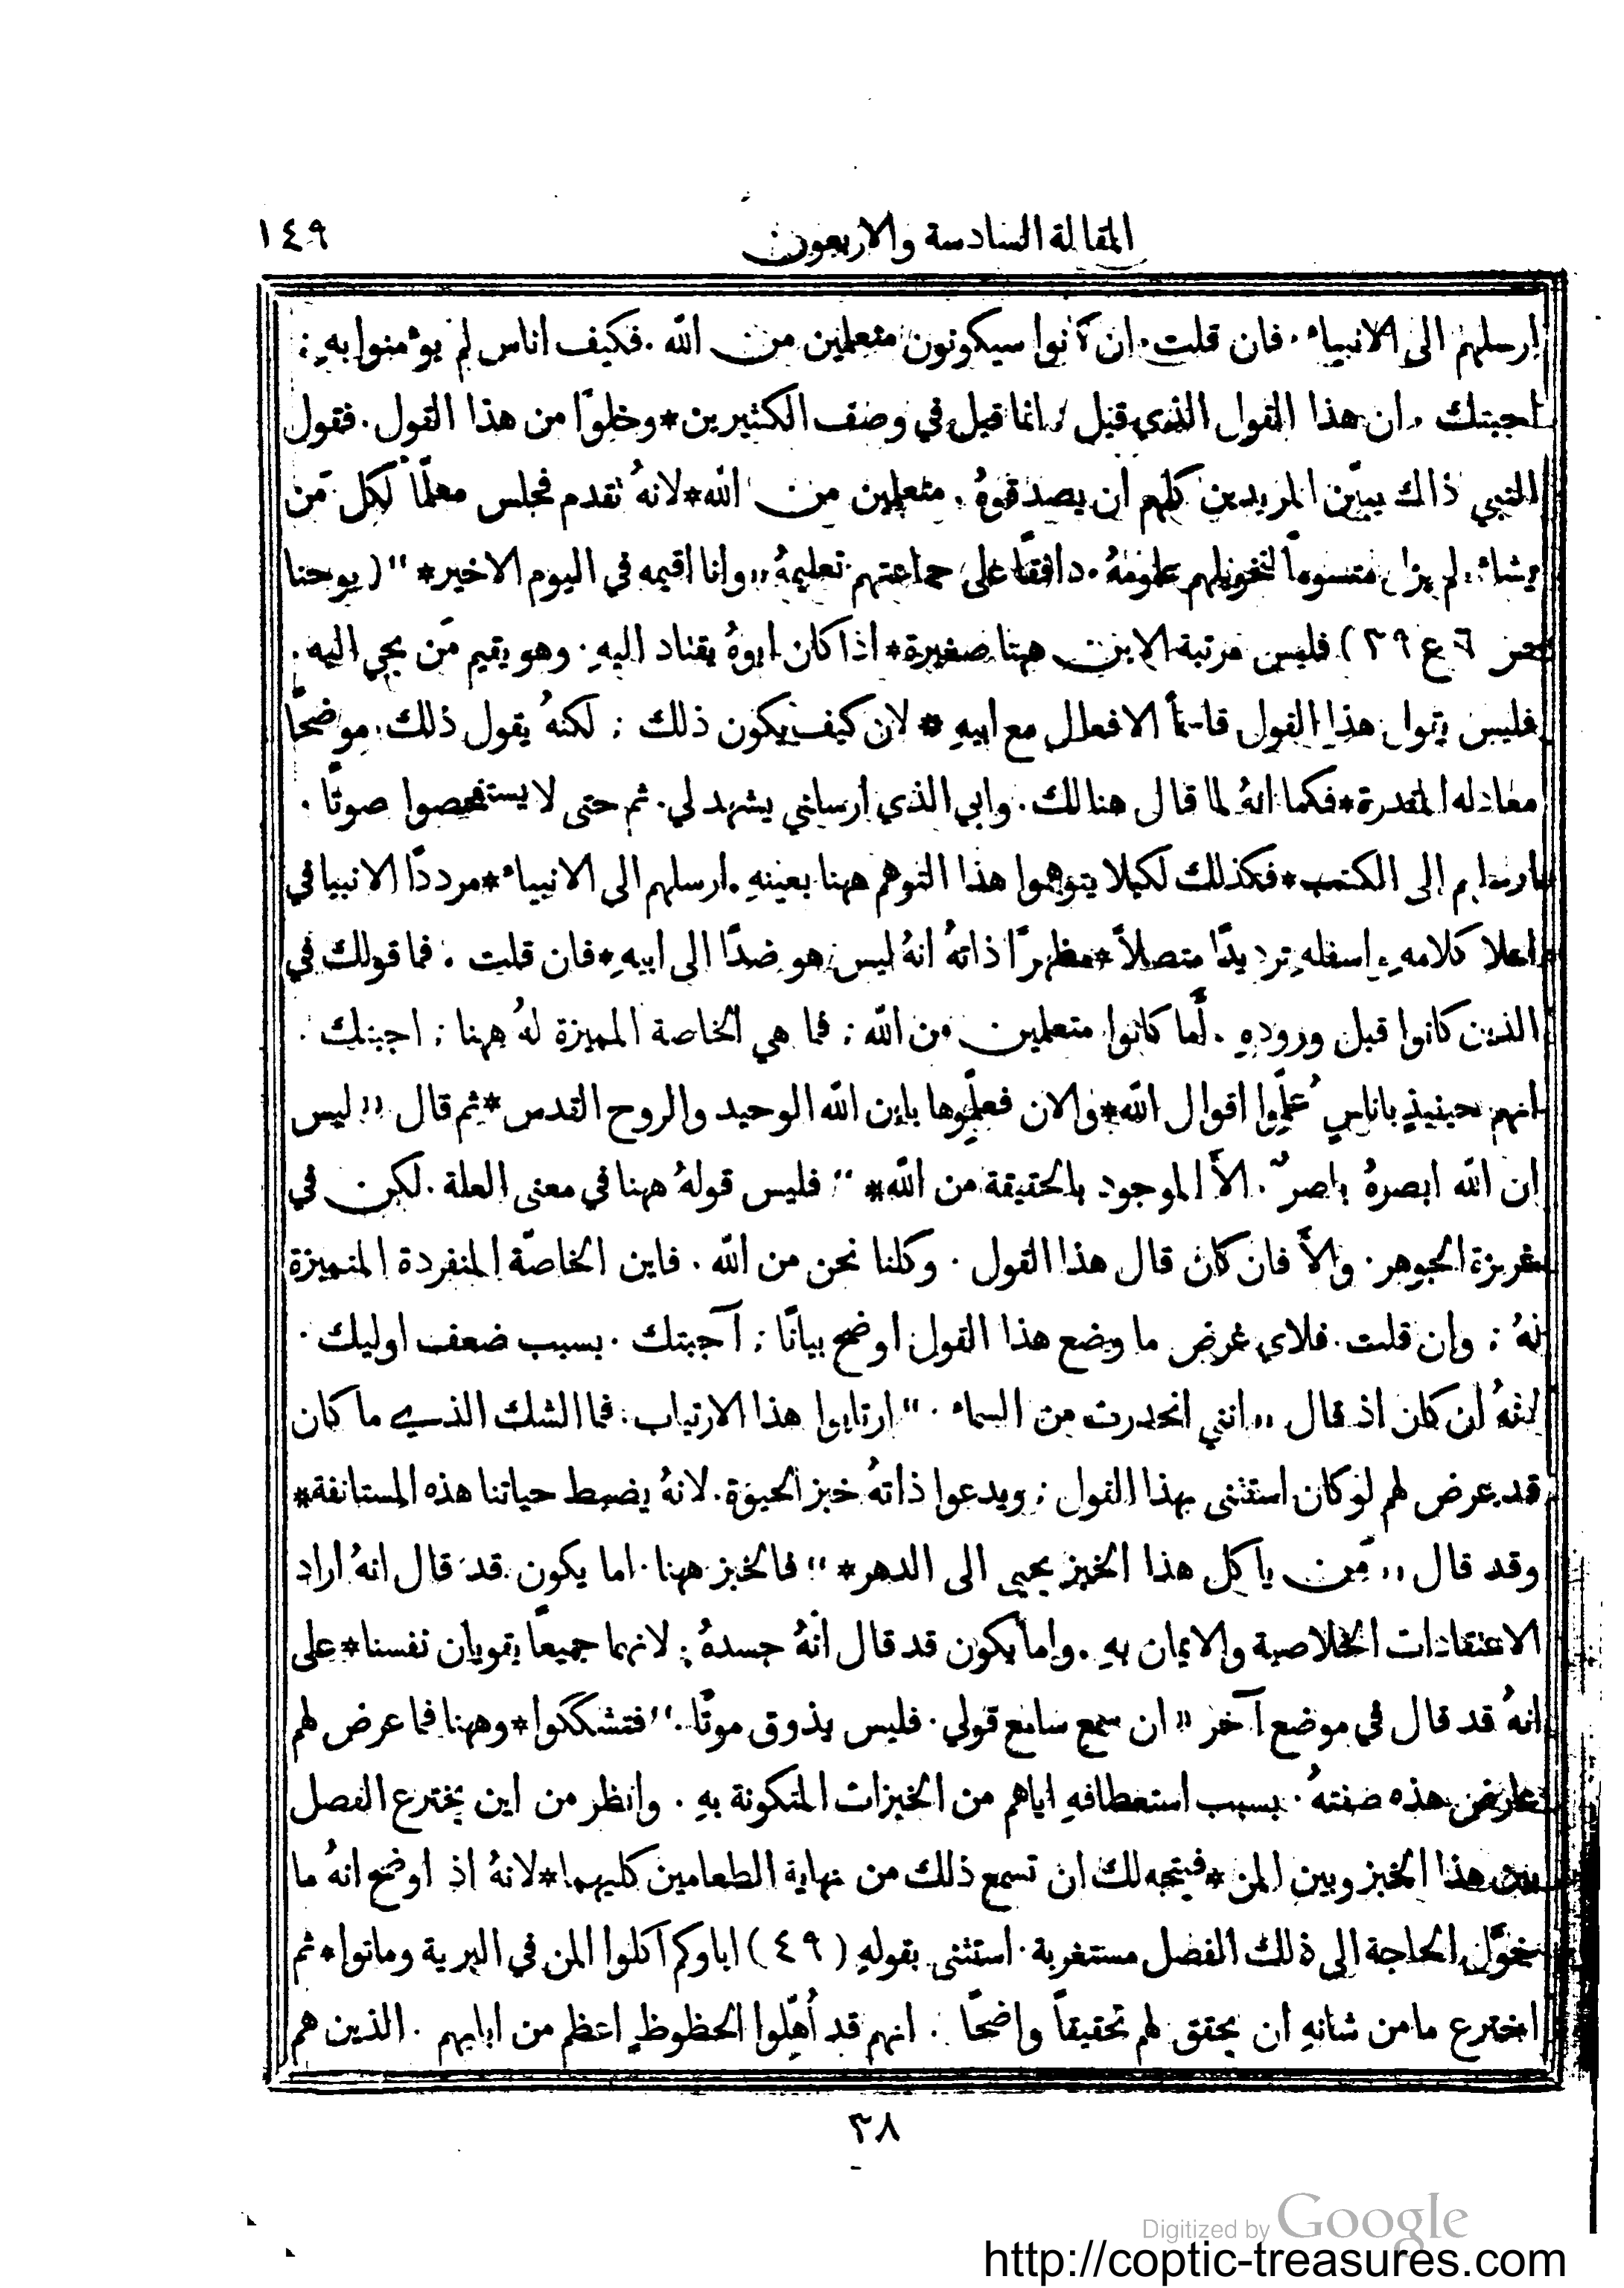 ١٤٩
المقالة السادسة والاربعون
ارسلهم الى الانبياء. فان قلت. ان كانوا سيكونون متعلمين من الله. فكيف اناس لم يومنوا بهِ;
اجبتك. ان هذا القول الذي قيل انما قيل في وصف الكثيرين*وخلوًا من هذا القول. فقول
النبي ذاك يبيّن المريدين كلهم ان يصدقوهُ. متعلمين من الله*لانهُ تقدم فجلس معلّمًا لكل مَن
يشاء. لم يزل متسومًا لتخويلهم علومهُ. دافقًا على جماعتهم تعليمهُ ,,وانا اقيمه في اليوم الاخير* ،، (يوحنا
ص ٦ ع ٣٩) فليس مرتبة الابن ههنا صغيرة* اذا كان ابوهُ يقتاد اليهِ. وهو يقيم مَن يجي اليه.
فليس يقول هذا القول قاسمًا الافعال مع ابيهِ * لان كيف يكون ذلك ; لكنهُ يقول ذلك. موضحًا
معادله المقدرة*فكما انهُ لما قال هنالك. وابي الذي ارسلني يشهد لي. ثم حتى لا يستفحصوا صوتًا.
ارسلهم الى الكتب*فكذلك لكيلا يتوهموا هذا التوهم ههنا بعينهِ. ارسلهم الى الانبياء*مرددًا الانبيا في
اعلا كلامهِ واسفلهِ ترديدًا متصلاً*مظهرًا ذاتهُ انهُ ليس هو ضدًا الى ابيهِ*فان قلت. فما قولك في
الذين كانوا قبل ورودهِ. أَما كانوا متعلمين من الله ; فما هي الخاصة المميزة لهُ ههنا ; اجبتك.
انهم حينيذٍ باناسٍ عُلّموا اقوال الله*والان فعلّموها بابن الله الوحيد والروح القدس*ثم قال ,, ليس
ان الله ابصرهُ باصرٌ. الاَّ الموجود بالحقيقة من الله* ،، فليس قولهُ ههنا في معنى العلة. لكن في
غريزة الجوهر. والاَّ فان كان قال هذا القول. وكلنا نحن من الله. فاين الخاصّة المنفردة المتميزة
لهُ ; وان قلت. فلاي غرض ما وضع هذا القول اوضح بيانًا ; اجبتك. بسبب ضعف اوليك.
لانهُ ان كان اذ قال ,, انني انحدرت من السماء. ،، ارتابوا هذا الارتياب. فما الشك الذي ما كان
قد عرض لهم لو كان استثنى بهذا القول ; ويدعوا ذاتهُ خبز الحيوة. لانهُ يضبط حياتنا هذه المستانفة*
وقد قال ,, مَن ياكل هذا الخبز يحيى الى الدهر* ،، فالخبز ههنا. اما يكون قد قال انهُ اراد
الاعتقادات الخلاصية والايمان بهِ. واما يكون قد قال انهُ جسدهُ ; لانهما جميعًا يقويان نفسنا* على
انهُ قد قال في موضع آخر ,, ان سمع سامع قولي. فليس يذوق موتًا. ،، فتشككوا*وههنا فما عرض لهم
عارض هذه صفتهُ. بسبب استعطافهِ اياهم من الخبزات المتكونة بهِ. وانظر من اين يخترع الفصل
بين هذا الخبز وبين المن*فيتجه لك ان تسمع ذلك من نهاية الطعامين كليهما*لانهُ اذ اوضح انهُ ما
خوَّل الحاجة الى ذلك الفصل مستغربة. استثنى بقولهِ (٤٩) اباوكم اكلوا المن في البرية وماتوا* ثم
اخترع ما من شانهِ ان يحقق لهم تحقيقًا واضحًا. انهم قد أُهّلوا الحظوظٍ اعظم من ابايهم. الذين هم
٣٨
Digitized by Google
http://coptic-treasures.com